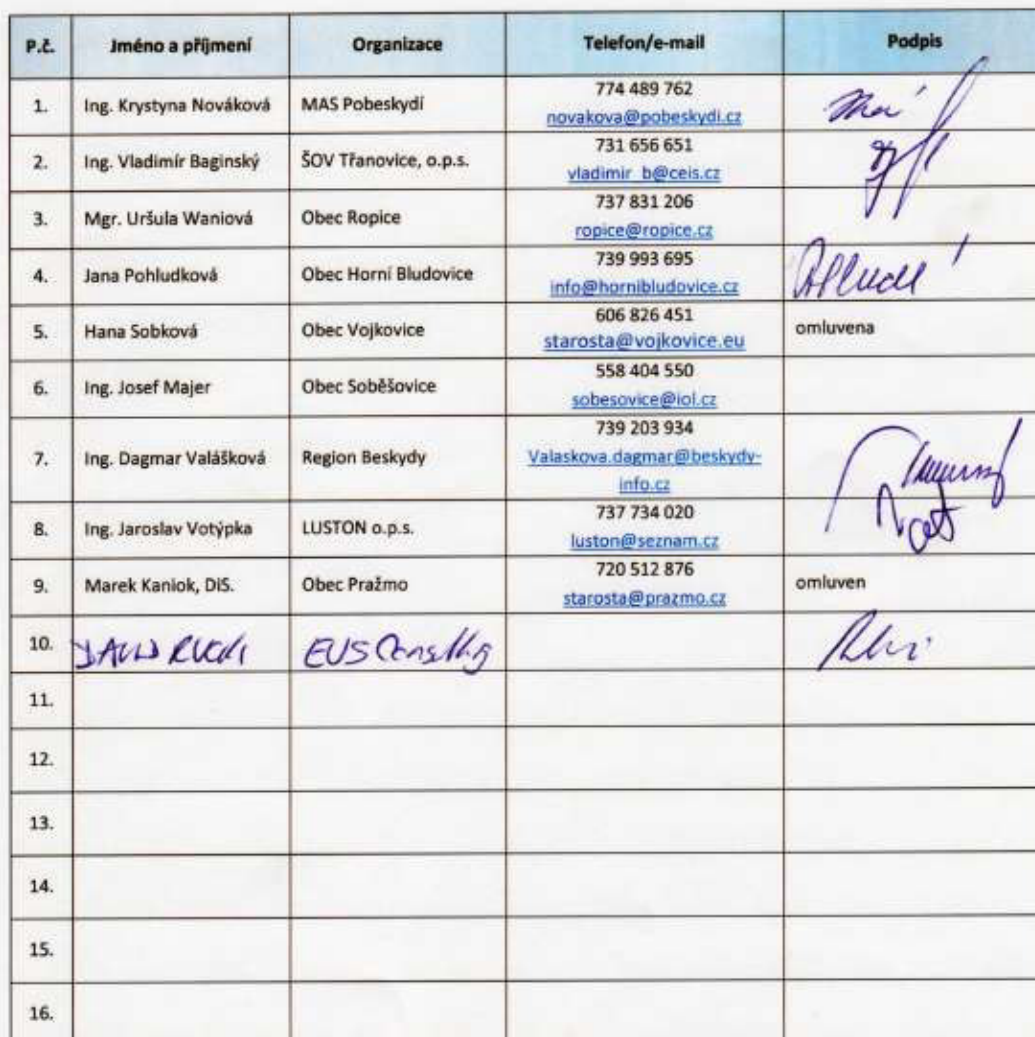 P.č. Jméno a příjmení Organizace Telefon/e-mail Podpis
1. Ing. Krystyna Nováková MAS Pobeskydí 774 489 762
novakova@pobeskydi.cz
2. Ing. Vladimír Baginský ŠOV Třanovice, o.p.s. 731 656 651
vladimir_b@ceis.cz
3. Mgr. Uršula Waniová Obec Ropice 737 831 206
ropice@ropice.cz
4. Jana Pohludková Obec Horní Bludovice 739 993 695
info@hornibludovice.cz
5. Hana Sobková Obec Vojkovice 606 826 451 omluvena
starosta@vojkovice.eu
6. Ing. Josef Majer Obec Soběšovice 558 404 550
sobesovice@iol.cz
7. Ing. Dagmar Valášková Region Beskydy 739 203 934
Valaskova.dagmar@beskydy-
info.cz
8. Ing. Jaroslav Votýpka LUSTON o.p.s. 737 734 020
luston@seznam.cz
9. Marek Kaniok, DiS. Obec Pražmo 720 512 876 omluven
starosta@prazmo.cz
10. EUS
11.
12.
13.
14.
15.
16.